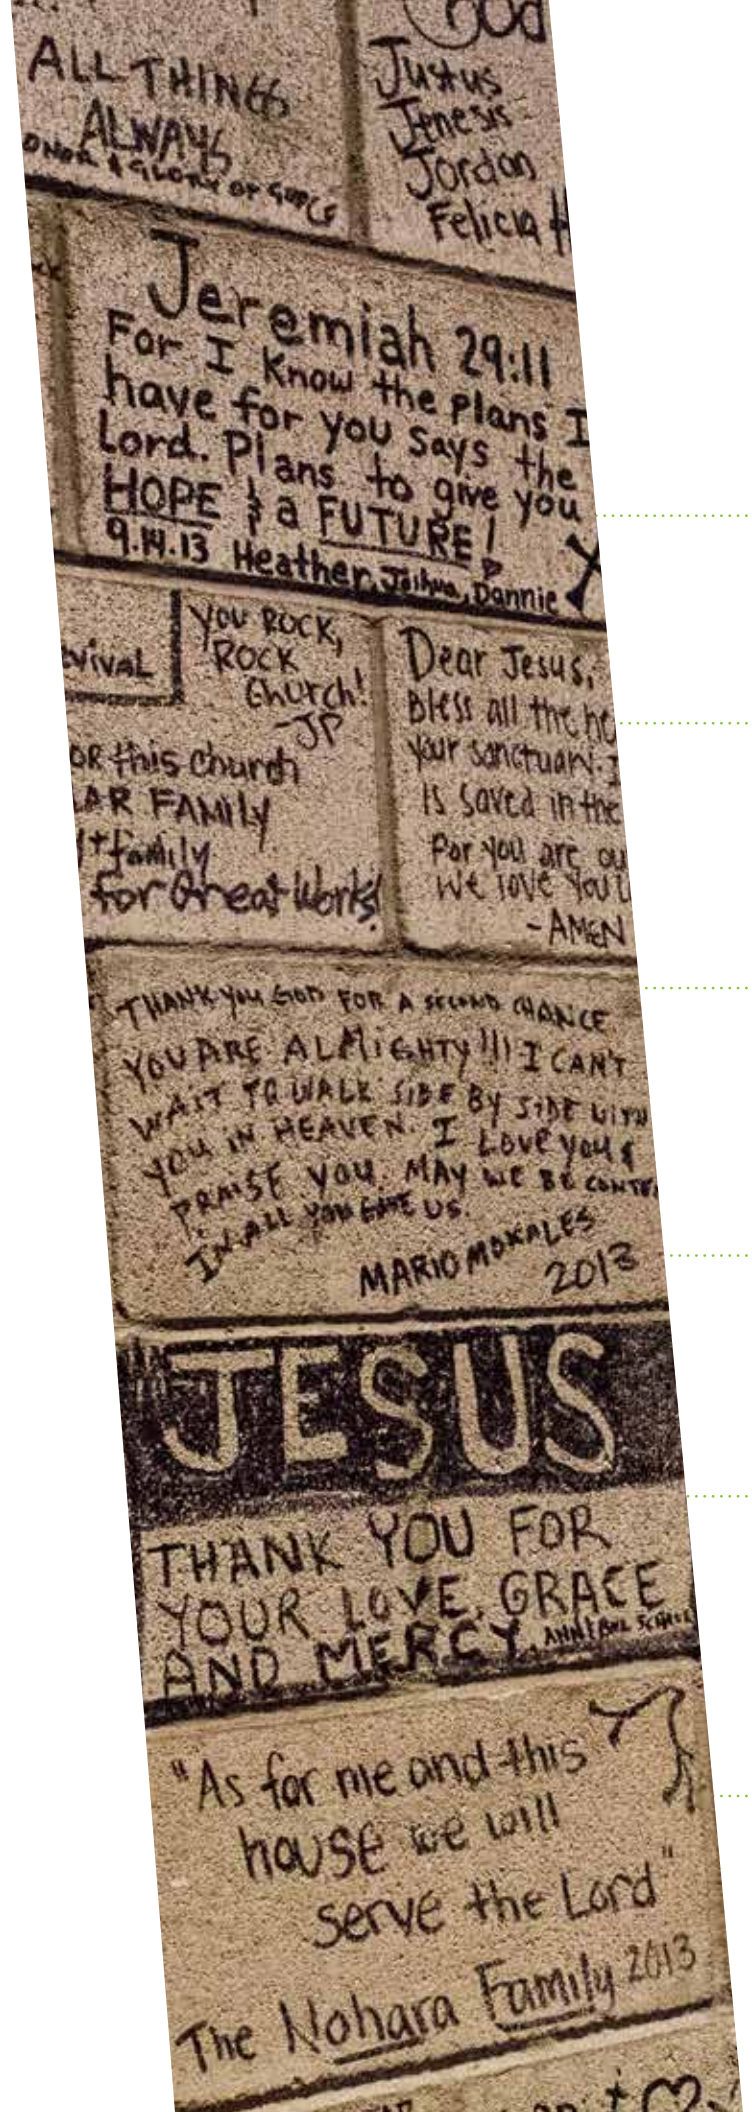 God
ALL THINGS
ALWAYS
GLORY OF
Justus
Jenesis
Jordan
Felicia H
Jeremiah 29:11
For I Know the plans I
have for you says the
Lord. Plans to give you
HOPE & a FUTURE!
9.14.13 Heather, Joshua, Dannie
vival
YOU ROCK,
ROCK
Church!
-JP
OR this church
AR FAMILY
family
for Great Works!
Dear Jesus,
Bless all the
your sanctuary.
is saved in the
For you are
We love You
-AMEN
THANK YOU GOD FOR A SECOND CHANCE
YOU ARE ALMIGHTY!!! I CAN'T
WAIT TO WALK SIDE BY SIDE WITH
YOU IN HEAVEN. I LOVE YOU &
PRAISE YOU. MAY WE BE CONTE
IN ALL YOU GAVE US.
MARIO MORALES
2013
JESUS
THANK YOU FOR
YOUR LOVE, GRACE
AND MERCY.
"As for me and this
house we will
serve the Lord"
The Nohara Family 2013